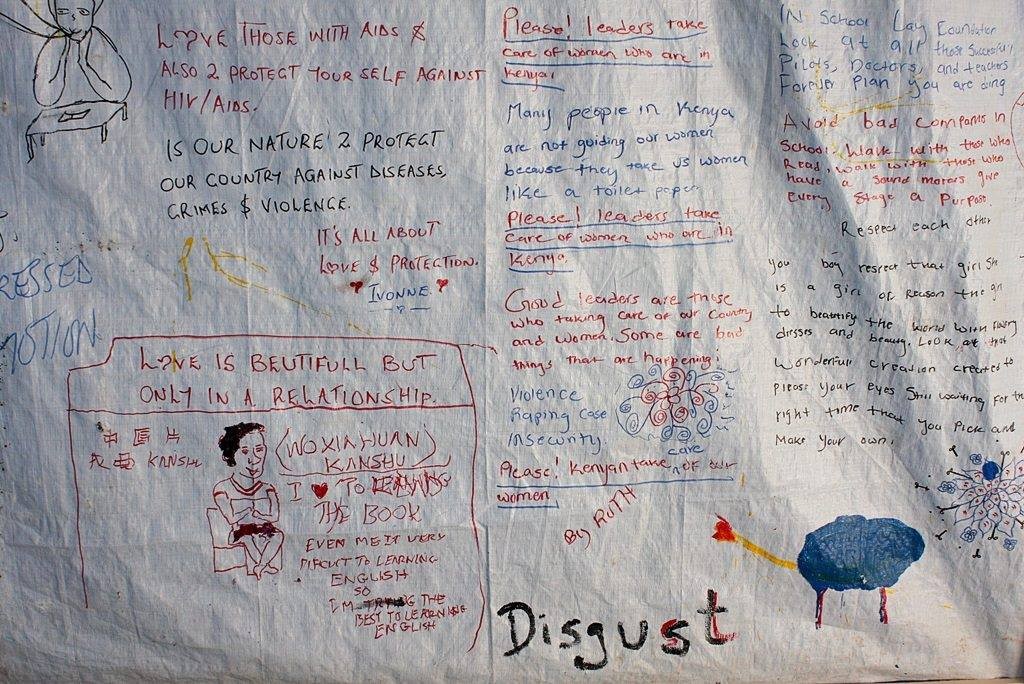 LOVE THOSE WITH AIDS &
ALSO 2 PROTECT YOUR SELF AGAINST
HIV/AIDS.
IS OUR NATURE 2 PROTECT
OUR COUNTRY AGAINST DISEASES,
CRIMES $ VIOLENCE.
IT'S ALL ABOUT
LOVE $ PROTECTION.
IVONNE.
RESSED
MOTION
LOVE IS BEUTIFULL BUT
ONLY IN A RELATIONSHIP.
KANSHU
(WO XIA HUAN)
KANSHU
I ♥ TO
THE BOOK
EVEN ME IT VERY
DIFICUT TO LEARNING
ENGLISH
SO
I'M THE
BEST TO LEARNING
ENGLISH
Please! leaders take
care of women who are in
Kenya.
Many people in Kenya
are not guiding our women
because they take us women
like a toilet paper.
Please! leaders take
care of women who are in
Kenya.
Good leaders are those
who taking care of our Country
and women. Some are bad
things that are happening;
Violence
Raping case
Insecurity.
Please! Kenyan take care of our
women
By RUTH
Disgust
IN School Lay Foundation
Look at all those successful
Pilots, Doctors, and teachers
Forever Plan you are doing
Avoid bad companis in
School. Walk with those who
Read, walk with those who
have a sound morars give
every stage a Purpose.
Respect each other
You boy respect that girl She
is a girl of Reason the girl
to beautify the world with
dresses and beauty. Look at that
Wonderfull creation created to
please your eyes Still waiting For the
right time that you Pick and
Make your own.